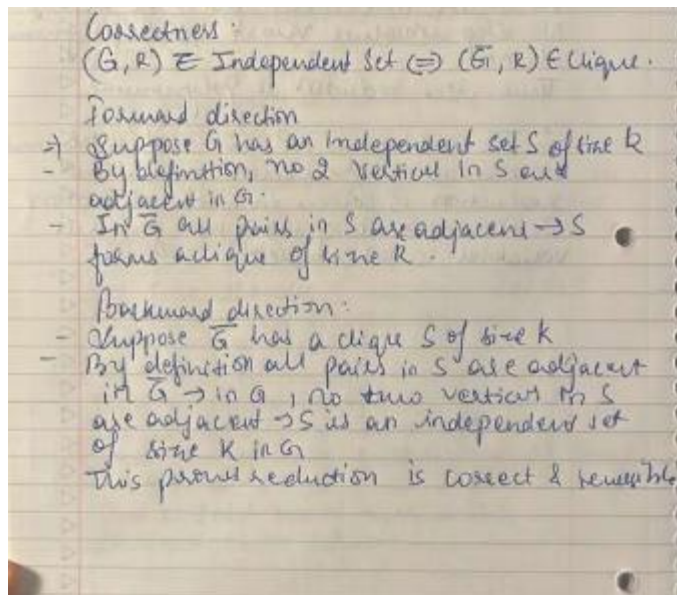 Correctness:
(G, k) ∈ Independent Set ⟺ (G̅, k) ∈ Clique.
Forward direction
⇒ Suppose G has an independent set S of size k
- By definition, no 2 vertices in S are
adjacent in G.
- In G̅ all pairs in S are adjacent → S
forms a clique of size k.
Backward direction:
- Suppose G̅ has a clique S of size k
- By definition all pairs in S are adjacent
in G̅ → in G, no two vertices in S
are adjacent → S is an independent set
of size k in G
This proves reduction is correct & reversible